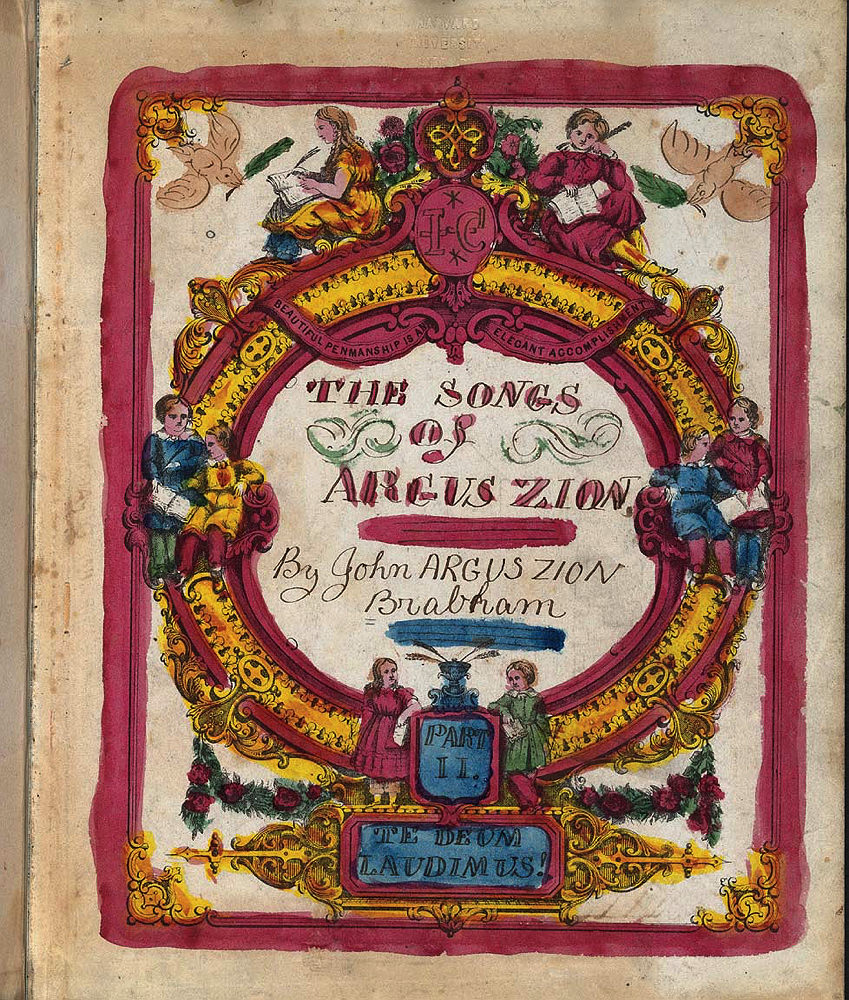 HARVARD
UNIVERSITY
BEAUTIFUL PENMANSHIP IS AN ELEGANT ACCOMPLISHMENT
THE SONGS
of
ARGUS ZION
By John ARGUS ZION
Brabham
PART
II.
TE DEUM
LAUDIMUS!